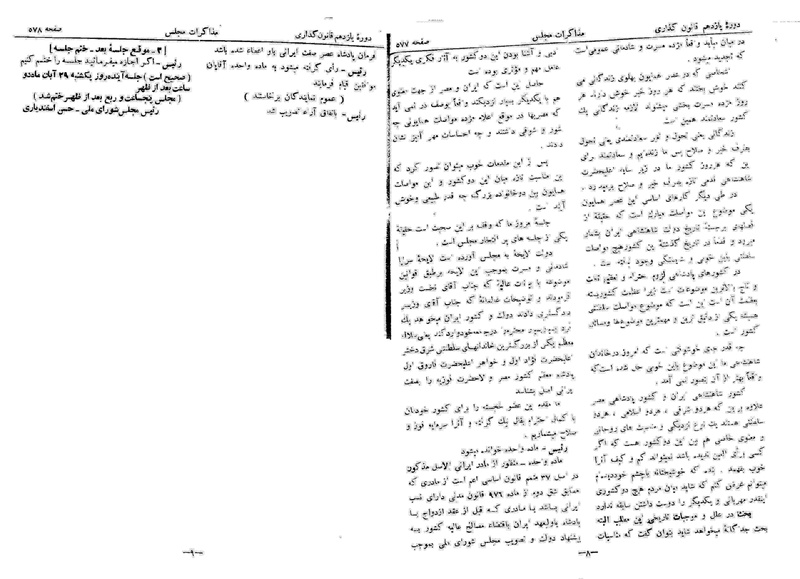 دورهٔ یازدهم قانون گذاری
مذاکرات مجلس
صفحه ۵۷۷
در میان میآید و واقعاً مژده مسرت و شادمانی عمومی است
که تجدید میشود.
اشخاصی که در عصر همایون پهلوی زندگانی می
کنند خوش بختند که هر روز خبر خوش دارند هر
روز مژده مسرت بخشی میشنوند لازمه زندگانی یک
کشور سعادتمند همین است
زندگانی یعنی تحول و تحول سعادتمندی یعنی تحول
بطرف خیر و صلاح پس ما زنده‌ایم و سعادتمند برای
این که هر روز کشور ما در زیر سایه اعلیحضرت
شاهنشاهی قدمی تازه بطرف خیر و صلاح برمیدارد.
در طی دیگر کارهای اساسی این عصر همایون
یکی موضوع این مواصلت مبارک است که حقیقة از
فصلهای برجسته تاریخ دولت شاهنشاهی ایران بشمار
میرود و قطعاً در تاریخ گذشته این کشور هیچ مواصلت
سلطنتی باین خوبی و شایستگی وجود نیافته است.
در کشورهای پادشاهی لزوم احترام و تعظیم تخت
و تاج بالاترین موضوعات است زیرا عظمت کشور بسته
بعظمت آن است این است که موضوع مواصلت سلطنتی
همیشه یکی از دقیق ترین و مهمترین موضوع‌ها و مسائل
کشور است.
چه قدر جای خوشوقتی است که امروز در خاندان
شاهنشاهی ما این موضوع باین خوبی حل شده است که
واقعاً بهتر از آن تصور نمی آمد.
کشور شاهنشاهی ایران و کشور پادشاهی مصر
علاوه بر این که هر دو شرقی، هر دو اسلامی، هر دو
سلطنتی هستند یک نوع نزدیکی و مناسبت های روحانی
و معنوی خاصی هم بین این دو کشور هست که اگر
کسی برأی العین ندیده باشد نمیتواند کم و کیف آنرا
خوب بفهمد. بنده که خوشبختانه بچشم خود دیده‌ام
میتوانم عرض کنم که شاید میان مردم هیچ دو کشوری
اینقدر مهربانی و یکدیگر را دوست داشتن سابقه ندارد
بحث در علل و موجبات تاریخی این مطلب البته
بحث جداگانه میخواهد شاید بتوان گفت که مناسبات
—۸—
ادبی و آشنا بودن این دو کشور به آثار فکری یکدیگر
عامل مهم و مؤثری بوده است
حاصل این است که ایران و مصر از جهت معنوی
هم با یکدیگر بسیار نزدیکند و واقعاً بوصف در نمی آید
که مصریها در موقع اعلام مژده مواصلت همایونی چه
شور و شوقی داشتند و چه احساسات مهر آمیز نشان
دادند.
پس از این مقدمات خوب میتوان تصور کرد که
این مناسبت تازه میان این دو کشور و این مواصلت
همایون بین دو خانواده بزرگ چه قدر طبیعی و خوش
آیند است.
جلسهٔ امروز ما که وقف بر این صحبت است حقیقة
یکی از جلسه های پر افتخار مجلس است.
دولت لایحهٔ به مجلس آورده است لایحهٔ سراپا
شادمانی و مسرت بموجب این لایحه برطبق قوانین
موضوعه با بیانات عالیهٔ که جناب آقای نخست وزیر
فرمودند و توضیحات عالمانهٔ که جناب آقای وزیر
دادگستری دادند دولت و کشور ایران میخواهد یک
معظم یکی از بزرگترین خاندانهای سلطنتی شرق دختر
اعلیحضرت فؤاد اول و خواهر اعلیحضرت فاروق اول
پادشاه معظم کشور مصر والاحضرت فوزیه را بصفت
ایرانی اصل بشناسد
ما مقدم این عضو خجسته را برای کشور خودمان
با کمال احترام بفال نیک گرفته و آنرا سرمایه فوز و
صلاح میشماریم.
رئیس ــ ماده واحده خوانده میشود
ماده واحده ــ منظور از مادر ایرانی الاصل مذکور
در اصل ۳۷ متمم قانون اساسی اعم است از مادری که
مطابق شق دوم از ماده ۹۷۶ قانون مدنی دارای نسب
ایرانی باشد یا مادری که قبل از عقد ازدواج با
پادشاه یا ولیعهد ایران باقتضاء مصالح عالیه کشور به
پیشنهاد دولت و تصویب مجلس شورای ملی بموجب
دورهٔ یازدهم قانون گذاری
مذاکرات مجلس
صفحه ۵۷۸
فرمان پادشاه عصر صفت ایرانی باو اعطاء شده باشد
رئیس ــ رأی گرفته میشود به ماده واحده آقایان
موافقین قیام فرمایند
(عموم نمایندگان برخاستند)
رئیس ــ باتفاق آراء تصویب شد
[۳ ــ موقع جلسهٔ بعد ــ ختم جلسه]
رئیس ــ اگر اجازه میفرمائید جلسه را ختم کنیم
(صحیح است) جلسه آینده روز یکشنبه ۲۹ آبان ماه دو
ساعت بعد از ظهر
(مجلس پنج ساعت و ربع بعد از ظهر ختم شد)
رئیس مجلس شورای ملی ــ حسن اسفندیاری
—۹—